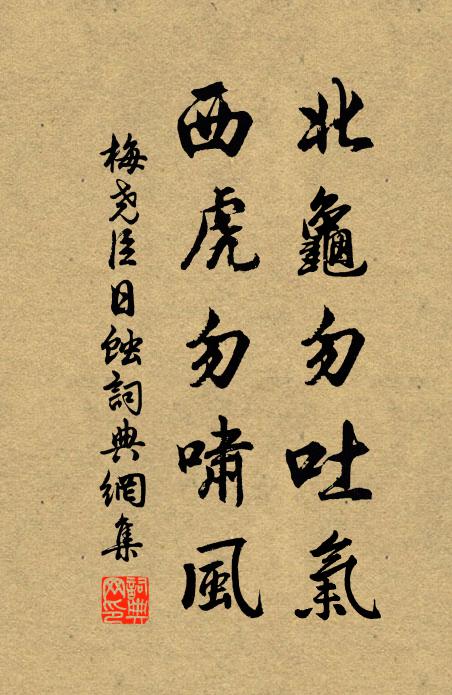 北龜勿吐氣
西虎勿嘯風
梅堯臣日蝕詞典網集
詞典网印